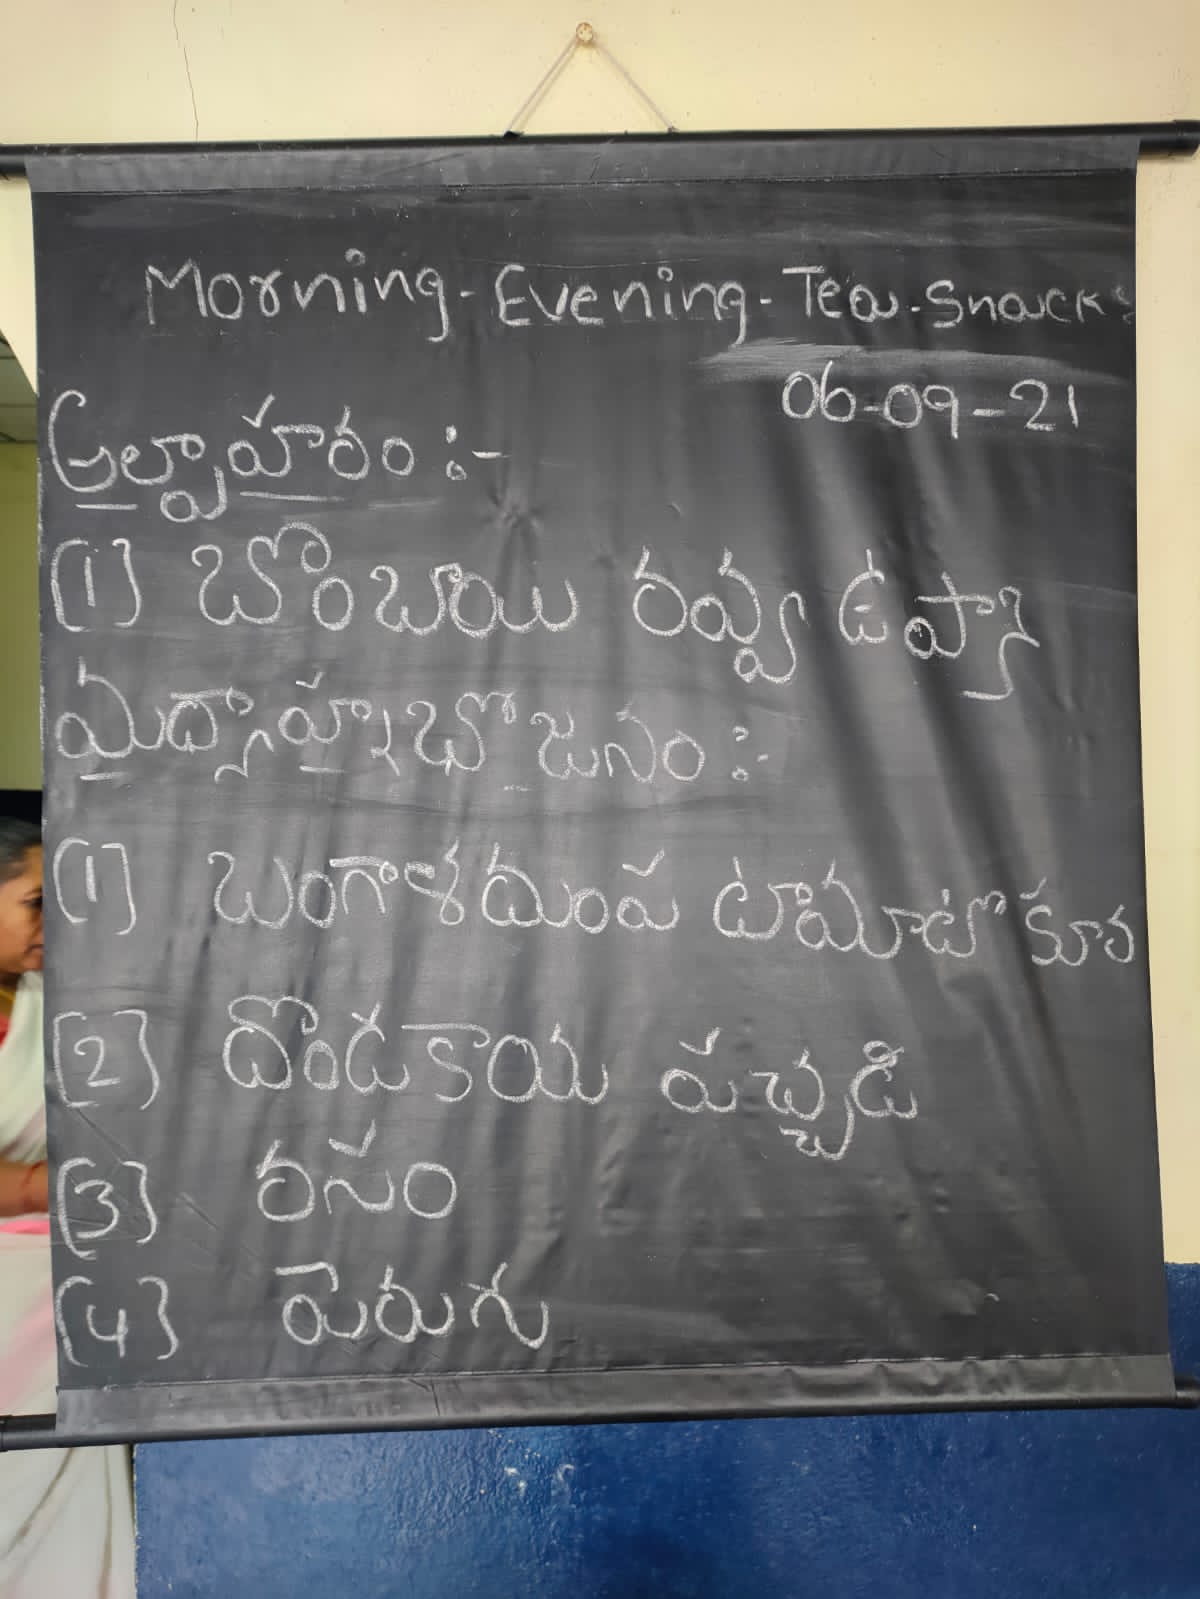 Morning-Evening-Tea-Snacks
06-09-21
అల్పాహారం :-
(1) బొంబాయి రవ్వ ఉప్మా
మధ్యాహ్న భోజనం :-
(1) బంగాళదుంప టామాటో కూర
(2) దొండకాయ పచ్చడి
(3) రసం
(4) పెరుగు